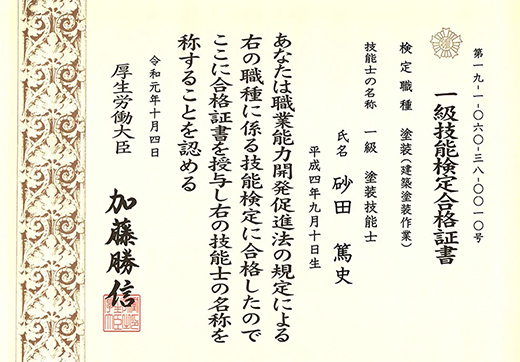 第一九-一-〇六〇-三八-〇〇一〇号
一級技能検定合格証書
検定職種 塗装(建築塗装作業)
技能士の名称 一級 塗装技能士
氏名 砂田 篤史
平成四年九月十日生
あなたは職業能力開発促進法の規定による
右の職種に係る技能検定に合格したので
ここに合格証書を授与し右の技能士の名称を
称することを認める
令和元年十月四日
厚生労働大臣
加藤勝信